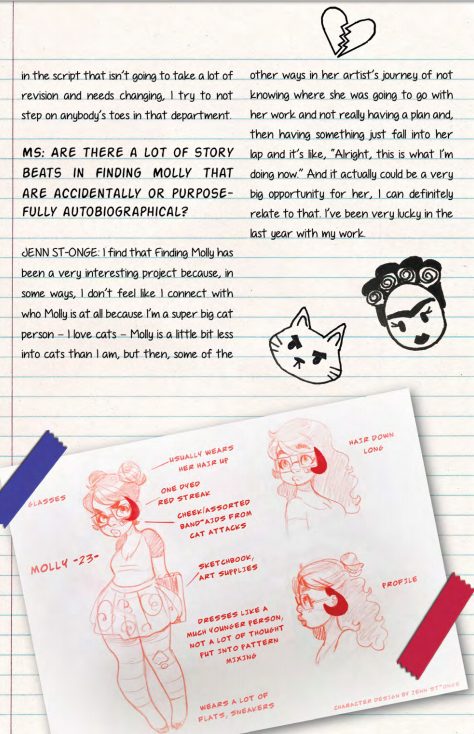 in the script that isn't going to take a lot of
revision and needs changing, I try to not
step on anybody's toes in that department.
MS: ARE THERE A LOT OF STORY
BEATS IN FINDING MOLLY THAT
ARE ACCIDENTALLY OR PURPOSE-
FULLY AUTOBIOGRAPHICAL?
JENN ST-ONGE: I find that Finding Molly has
been a very interesting project because, in
some ways, I don't feel like I connect with
who Molly is at all because I'm a super big cat
person – I love cats – Molly is a little bit less
into cats than I am, but then, some of the
other ways in her artist's journey of not
knowing where she was going to go with
her work and not really having a plan and,
then having something just fall into her
lap and it's like, "Alright, this is what I'm
doing now." And it actually could be a very
big opportunity for her, I can definitely
relate to that. I've been very lucky in the
last year with my work.
USUALLY WEARS
HER HAIR UP
GLASSES
ONE DYED
RED STREAK
CHEEK/ASSORTED
BAND-AIDS FROM
CAT ATTACKS
MOLLY -23-
SKETCHBOOK,
ART SUPPLIES
DRESSES LIKE A
MUCH YOUNGER PERSON,
NOT A LOT OF THOUGHT
PUT INTO PATTERN
MIXING
WEARS A LOT OF
FLATS, SNEAKERS
HAIR DOWN
LONG
PROFILE
CHARACTER DESIGN BY JENN ST-ONGE